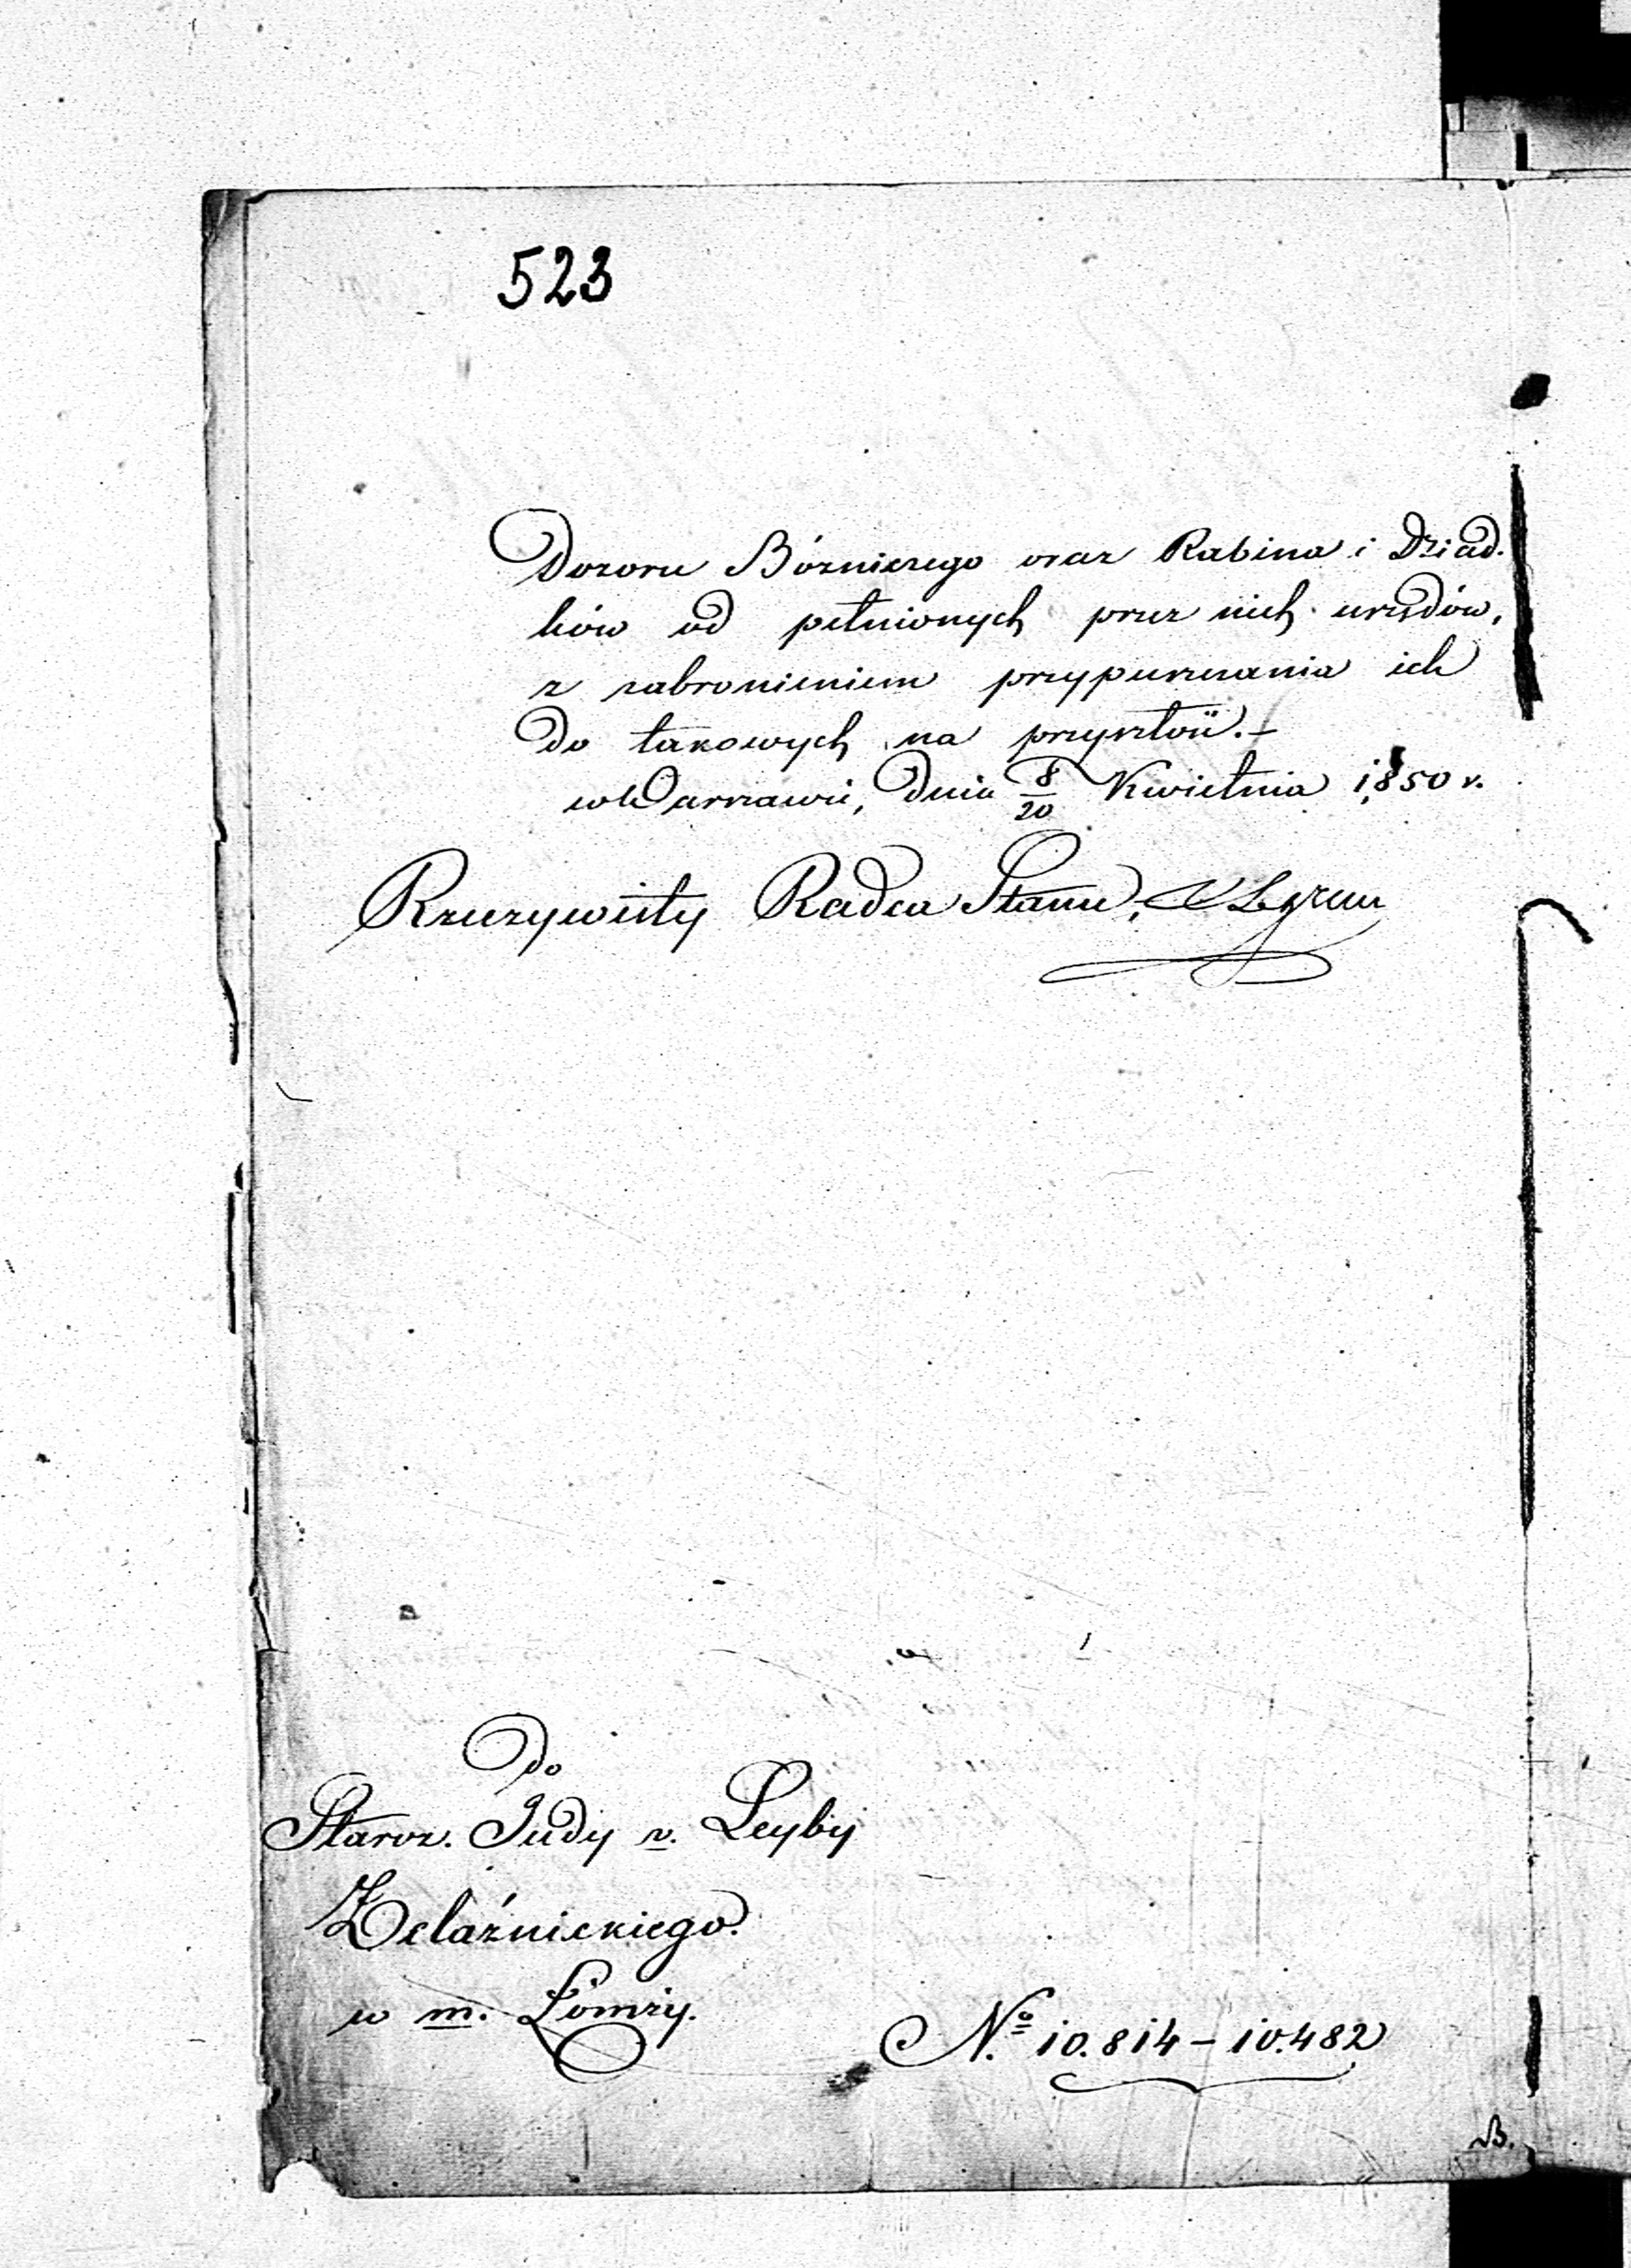 523
Dozoru Bóżniczego oraz Rabina i Dziad-
ków od pełnionych przez nich urzędów,
z zabronieniem przypuszczania ich
do takowych na przyszłość.-
w Warszawie, dnia 8/20 Kwietnia 1850 r.
Rzeczywisty Radca Stanu,
Do
Staroz. Judy v. Leyby
Żelaźnickiego.
w m. Łomży.
N.º 10.814 - 10.482
B.